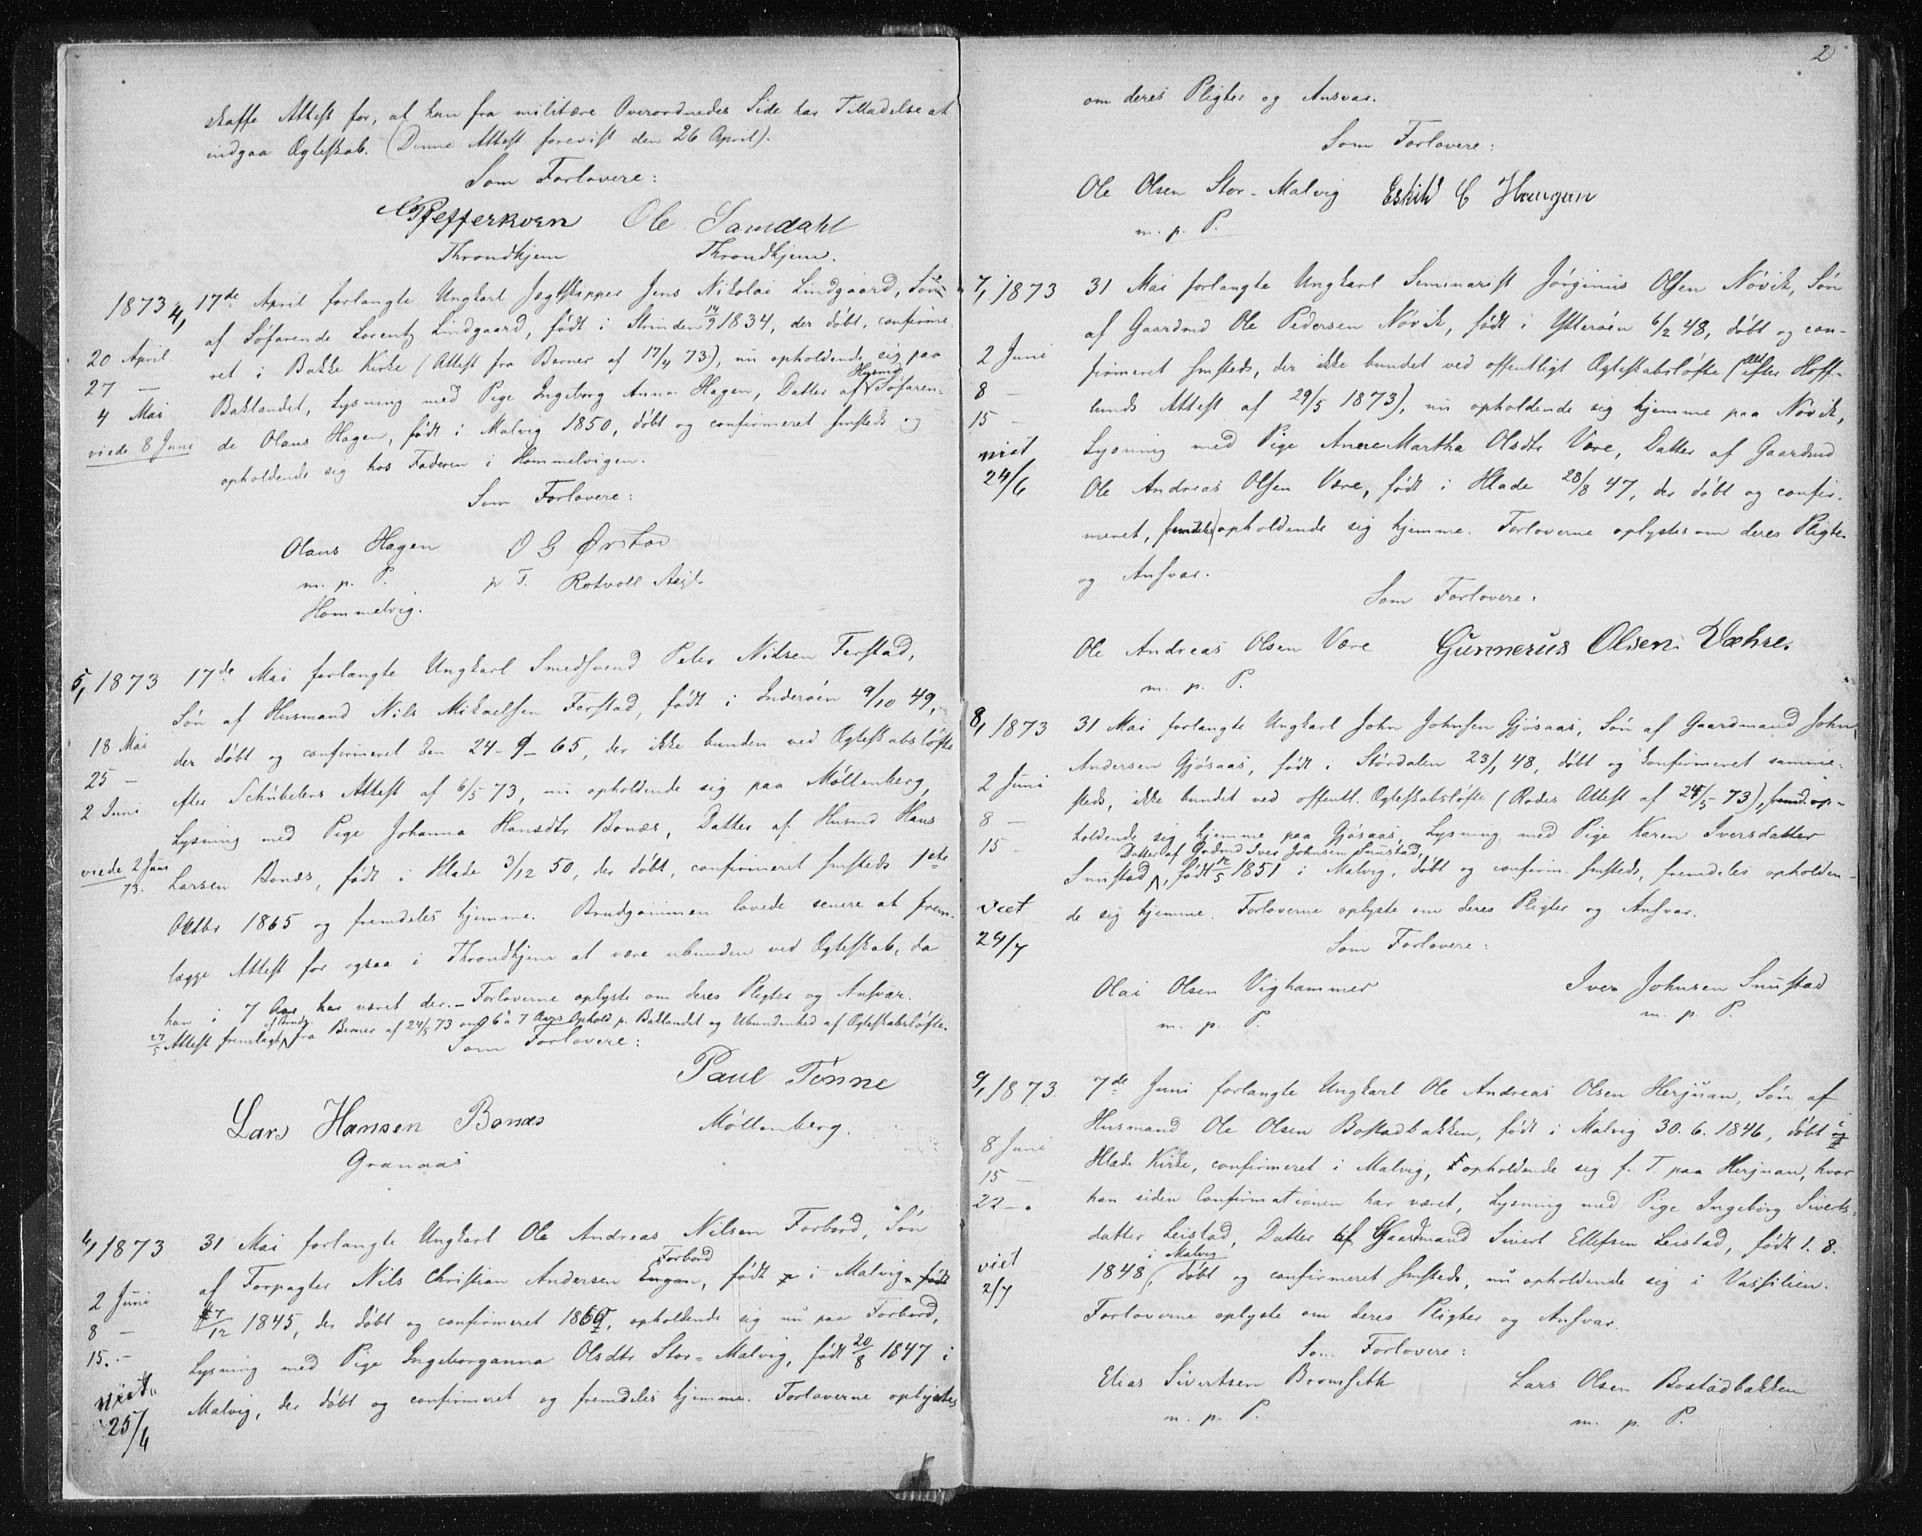 skaffe Attest for, at han fra militære Overordnedes Side har Tilladelse at
indgaa Ægteskab. (Denne Attest forevist den 26 April).
Som Forlovere:
Pfefferkorn Ole Samdahl
Throndhjem Throndhjem.
1873 4, 17de April forlangte Ungkarl Jægtskipper Jens Nikolai Lindgaard, Søn
af Søfarende Lorentz Lindgaard, født i Strinden 14/9 1834, der døbt, confirme
20 April ret i Bakke Kirke (Attest fra Berner af 17/4 73), nu opholdende sig paa
27 — Baklandet, Lysning med Pige Ingeborg Anna Hagen, Datter af Husmd Søfaren-
4 Mai de Olaus Hagen, født i Malvig 1850, døbt og confirmeret smsteds og
viede 8 Juni opholdende sig hos Faderen i Hommelvigen.
Som Forlovere:
Olaus Hagen O G Ørstad
m. p. P. p T. Rotvoll Asyl.
Hommelvig.
5, 1873 17de Mai forlangte Ungkarl Smedsvend Peter Nilsen Ferstad,
Søn af Husmand Nils Mikaelsen Ferstad, født i Inderøen 9/10 49,
18 Mai der døbt og confirmeret den 24-9-65, der ikke bunden ved Ægteskabsløfte
25 — efter Schübelers Attest af 6/5 73, nu opholdende sig paa Møllenberg,
2 Juni Lysning med Pige Johanna Hansdtr Bonæs, Datter af Husmd Hans
viede 2 Juni 73. Larsen Bonæs, født i Hlade 3/12 50, der døbt, confirmeret smsteds 1ste
Oktbr 1865 og fremdeles hjemme. Brudgommen lovede senere at frem-
lægge Attest for ogsaa i Throndhjem at være ubunden ved Ægteskab, da
han i 7 Aar har været der. — Forloverne oplyste om deres Pligter og Ansvar.
27/5 Attest fremlagt af Brudg. fra Berner af 24/5 73 om 6 à 7 Aars Ophold p. Baklandet og Ubundenhed af Ægteskabsløfte.
Som Forlovere:
Paul Tønne
Lars Hansen Bonæs Møllenberg.
Granaas
6, 1873 31 Mai forlangte Ungkarl Ole Andreas Nilsen Forbord, Søn
af Forpagter Nils Christian Andersen Engan, Forbord født i Malvig født
2 Juni 27/12 1845, der døbt og confirmeret 1860, opholdende sig nu paa Forbord,
8 —
15. — Lysning med Pige Ingeborganna Olsdtr Stor-Malvig, født 20/8 1847 i
viet. 25/6 Malvig, der døbt og confirmeret og fremdeles hjemme. Forloverne oplystes
2
om deres Pligter og Ansvar.
Som Forlovere:
Ole Olsen Stor-Malvig Eskild C Haugan
m. p. P.
7, 1873 31 Mai forlangte Ungkarl Seminarist Jørginus Olsen Nøvik, Søn
af Gaardmd Ole Pedersen Nøvik, født i Ytterøen 6/2 48, døbt og con-
2 Juni firmeret smsteds, der ikke bundet ved offentligt Ægteskabsløfte (alt efter Hoff-
8 — lunds Attest af 29/5 1873), nu opholdende sig hjemme paa Nøvik,
15 —
viet 24/6 Lysning med Pige Anne Martha Olsdtr Være, Datter af Gaardmd
Ole Andreas Olsen Være, født i Hlade 28/8 47, der døbt og confir-
meret, fremdeles opholdende sig hjemme. Forloverne oplystes om deres Pligter
og Ansvar.
Som Forlovere.
Ole Andreas Olsen Være Gunnerus Olsen Væhre.
m. p. P.
8, 1873 31 Mai forlangte Ungkarl John Johnsen Gjøsaas, Søn af Gaardmand John
Andersen Gjøsaas, født i Størdalen 23/1 48, døbt og confirmeret samme-
2 Juni steds, ikke bundet ved offentl. Ægteskabsløfte (Rodes Attest af 24/5 73), fremd. op-
8 — holdende sig hjemme paa Gjøsaas, Lysning med Pige Karen Iversdatter
15 — Datter af Grdmd Iver Johnsen Snustad,
Snustad, født 12/5 1851 i Malvig, døbt og confirm. smsteds, fremdeles opholden-
viet 24/7 de sig hjemme. Forloverne oplyste om deres Pligter og Ansvar.
Som Forlovere:
Olai Olsen Vighammer Iver Johnsen Snustad
m. p. P. m. p. P.
9, 1873. 7de Juni forlangte Ungkarl Ole Andreas Olsen Herjuan, Søn af
Husmand Ole Olsen Bostadbakken, født i Malvig 30. 6. 1846, døbt i
8 Juni Hlade Kirke, confirmeret i Malvig, opholdende sig p. T. paa Herjuan, hvor
15 —
22 — han siden Confirmationen har været, Lysning med Pige Ingeborg Siverts-
datter Leistad, Datter af Gaardmand Sivert Ellefsen Leistad, født 1. 8.
viet 2/7 1848 i Malvig, døbt og confirmeret smsteds, nu opholdende sig i Vasfilien.
Forloverne oplyste om deres Pligter og Ansvar.
Som Forlovere:
Elias Sivertsen Bromseth Lars Olsen Bostadbakken
m. p. P. m. p. P.